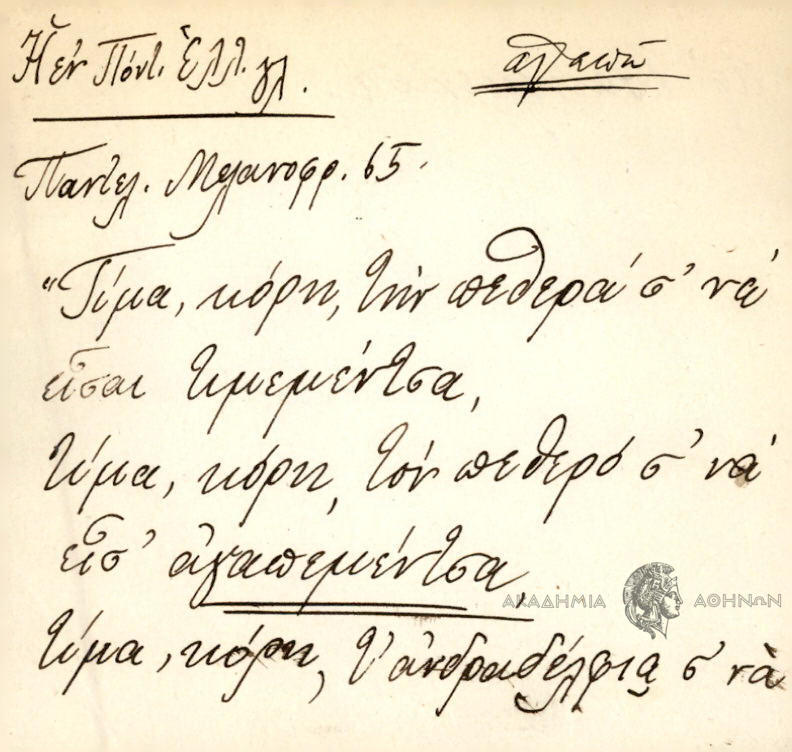 Ἡ ἐν Πόντ. Ἑλλ. γλ.
ἀγαπῶ
Παντελ. Μελανοφρ. 65.
"Τίμα, κόρη, τὴν πεθερά σ' νὰ
εἶσαι τιμεμέντσα,
τίμα, κόρη, τὸν πεθερό σ' νὰ
εἶσ' ἀγαπεμέντσα,
τίμα, κόρη, τ' ἀνδραδέλφια σ' νὰ
ΑΚΑΔΗΜΙΑ ΑΘΗΝΩΝ